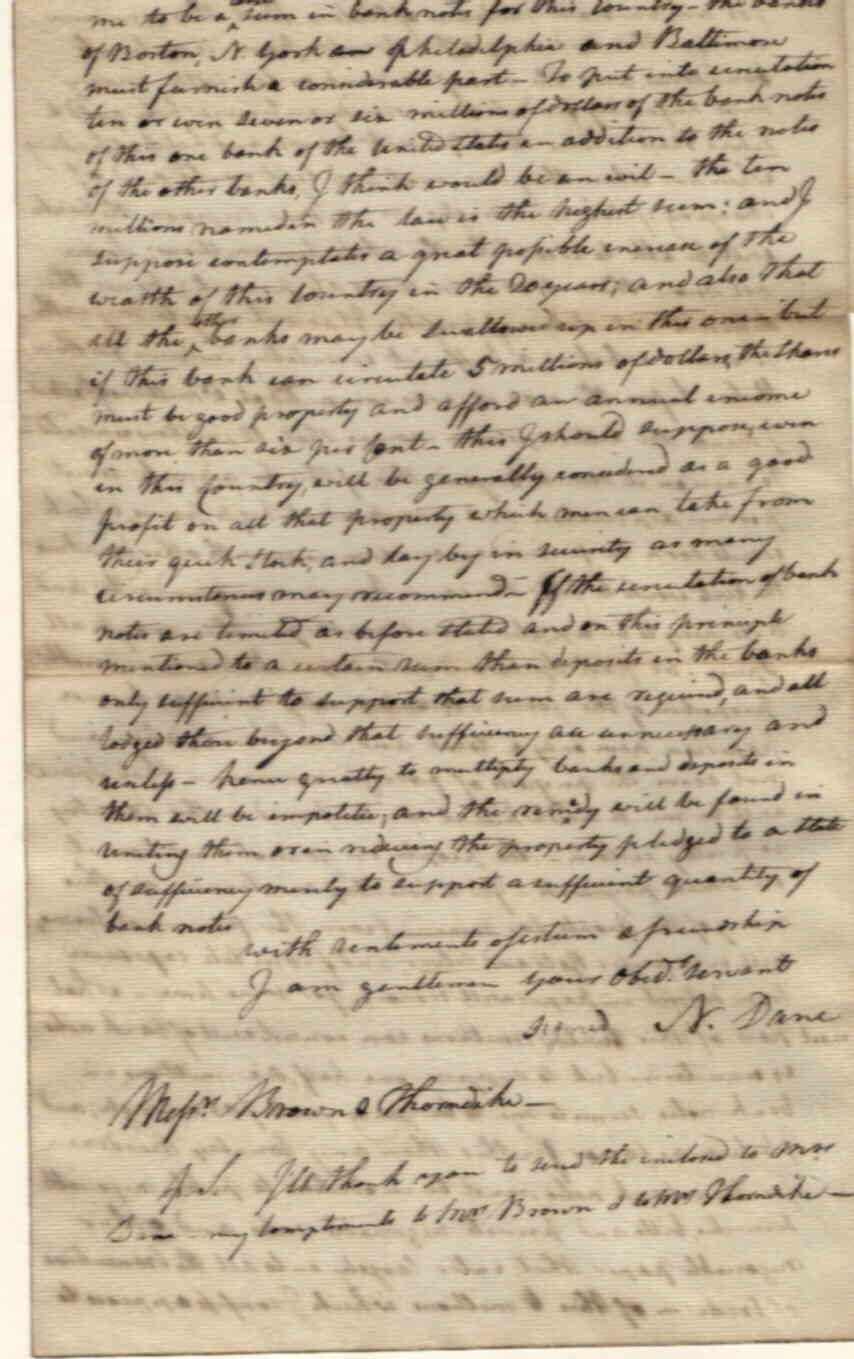 me to be a sum in bank notes for this Country - the banks
of Boston, N. York an Philadelphia and Baltimore
must furnish a considerable part - To put into circulation
ten or even seven or six millions of dollars of the bank notes
of this one bank of the United States in addition to the notes
of the other banks, I think would be an evil - the ten
millions named in the law is the highest sum; and I
suppose contemplates a great possible increase of the
wealth of this Country in the 20 years; and also that
all the other banks may be swallowed up in this one - but
if this bank can circulate 5 millions of dollars, the shares
must be good property and afford an annual income
of more than six per Cent - this I should suppose, even
in this Country, will be generally considered as a good
profit on all that property which men can take from
their quick Stock, and lay by in security as many
circumstances may recommend - If the circulation of bank
notes are limited as before stated and on this principle
mentioned to a certain sum then deposits in the banks
only sufficient to support that sum are required, and all
lodged there beyond that sufficiency are unnecessary and
useless - hence greatly to multiply banks and deposits in
them will be impolitic, and the remedy will be found in
uniting them or in reducing the property pledged to a state
of sufficiency merely to support a sufficient quantity of
bank notes
with sentiments of esteem & friendship
I am gentlemen your Obedt. servant
signed N. Dane
Messrs. Brown & Thorndike -
P.S. I'll thank you to send the inclosed to Mrs
Dane - my compliments to Mrs Brown & to Mrs Thorndike -